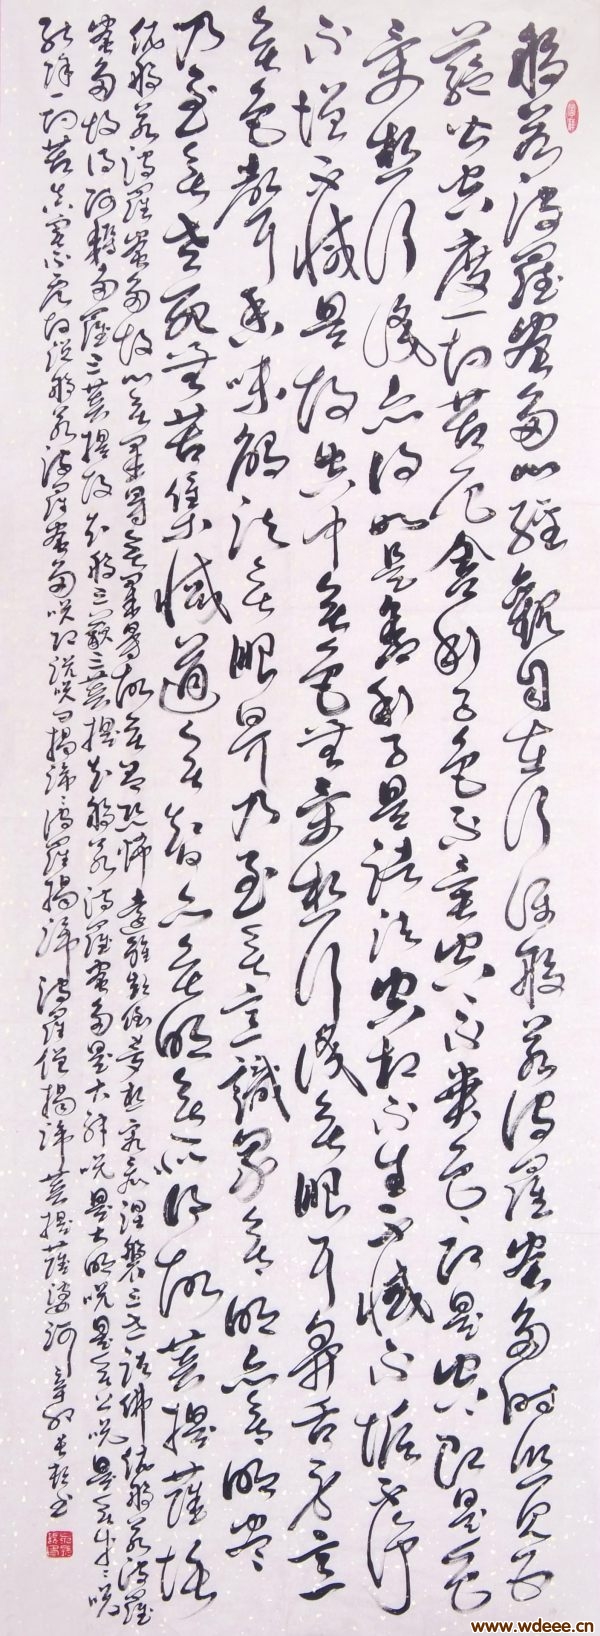 般若波羅蜜多心經觀自在行深般若波羅蜜多時照見五
蘊皆空度一切苦厄舍利子色不異空空不異色色即是空空即是色
受想行識亦復如是舍利子是諸法空相不生不滅不垢不淨
不增不減是故空中無色無受想行識無眼耳鼻舌身意
無色聲香味觸法無眼界乃至無意識界無無明亦無無明盡
乃至無老死無苦集滅道無智亦無得無所得故菩提薩埵
依般若波羅蜜多故心無罣礙無罣礙故無有恐怖遠離顛倒夢想究竟涅槃三世諸佛依般若波羅
蜜多故得阿耨多羅三藐三菩提故知般若波羅蜜多是大神咒是大明咒是無上咒是無等等咒
能除一切苦真實不虛故說般若波羅蜜多咒即說咒曰揭諦波羅揭諦波羅僧揭諦菩提薩婆訶
www.wdeee.cn